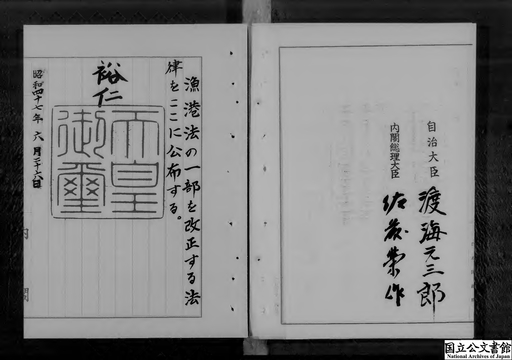 自治大臣 渡海元三郎
内閣総理大臣 佐藤榮作
漁港法の一部を改正する法
律をここに公布する。
裕仁
天皇御璽
昭和四十七年六月二十六日
内閣
国立公文書館
National Archives of Japan